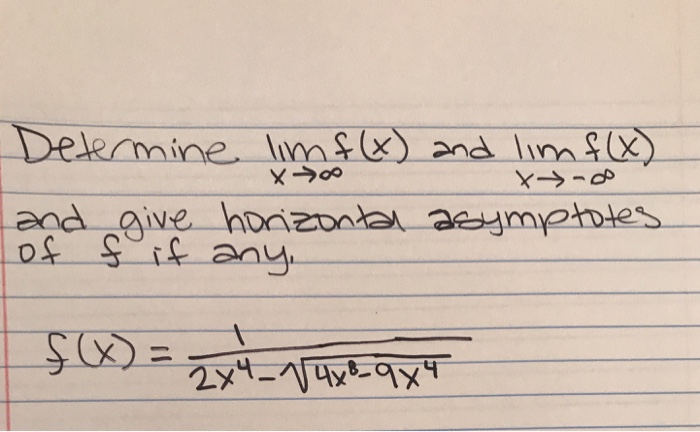 Determine lim f(x) and lim f(x)
x→∞ x→-∞
and give horizontal asymptotes
of f if any.
f(x) = 1
2x⁴-√4x⁸-9x⁴